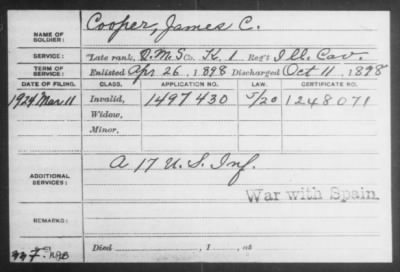 NAME OF SOLDIER: Cooper, James C.
SERVICE: Late rank, Q.M.S. Co. K, 1 Reg't Ill. Cav.
TERM OF SERVICE: Enlisted Apr 26, 1898 Discharged Oct 11, 1898
DATE OF FILING. CLASS. APPLICATION NO. LAW. CERTIFICATE NO.
1924 Mar. 11 Invalid, 1497430 5/20 1248071
Widow,
Minor,
ADDITIONAL SERVICES: A 17 U.S. Inf.
War with Spain.
REMARKS:
Died , 1 , at